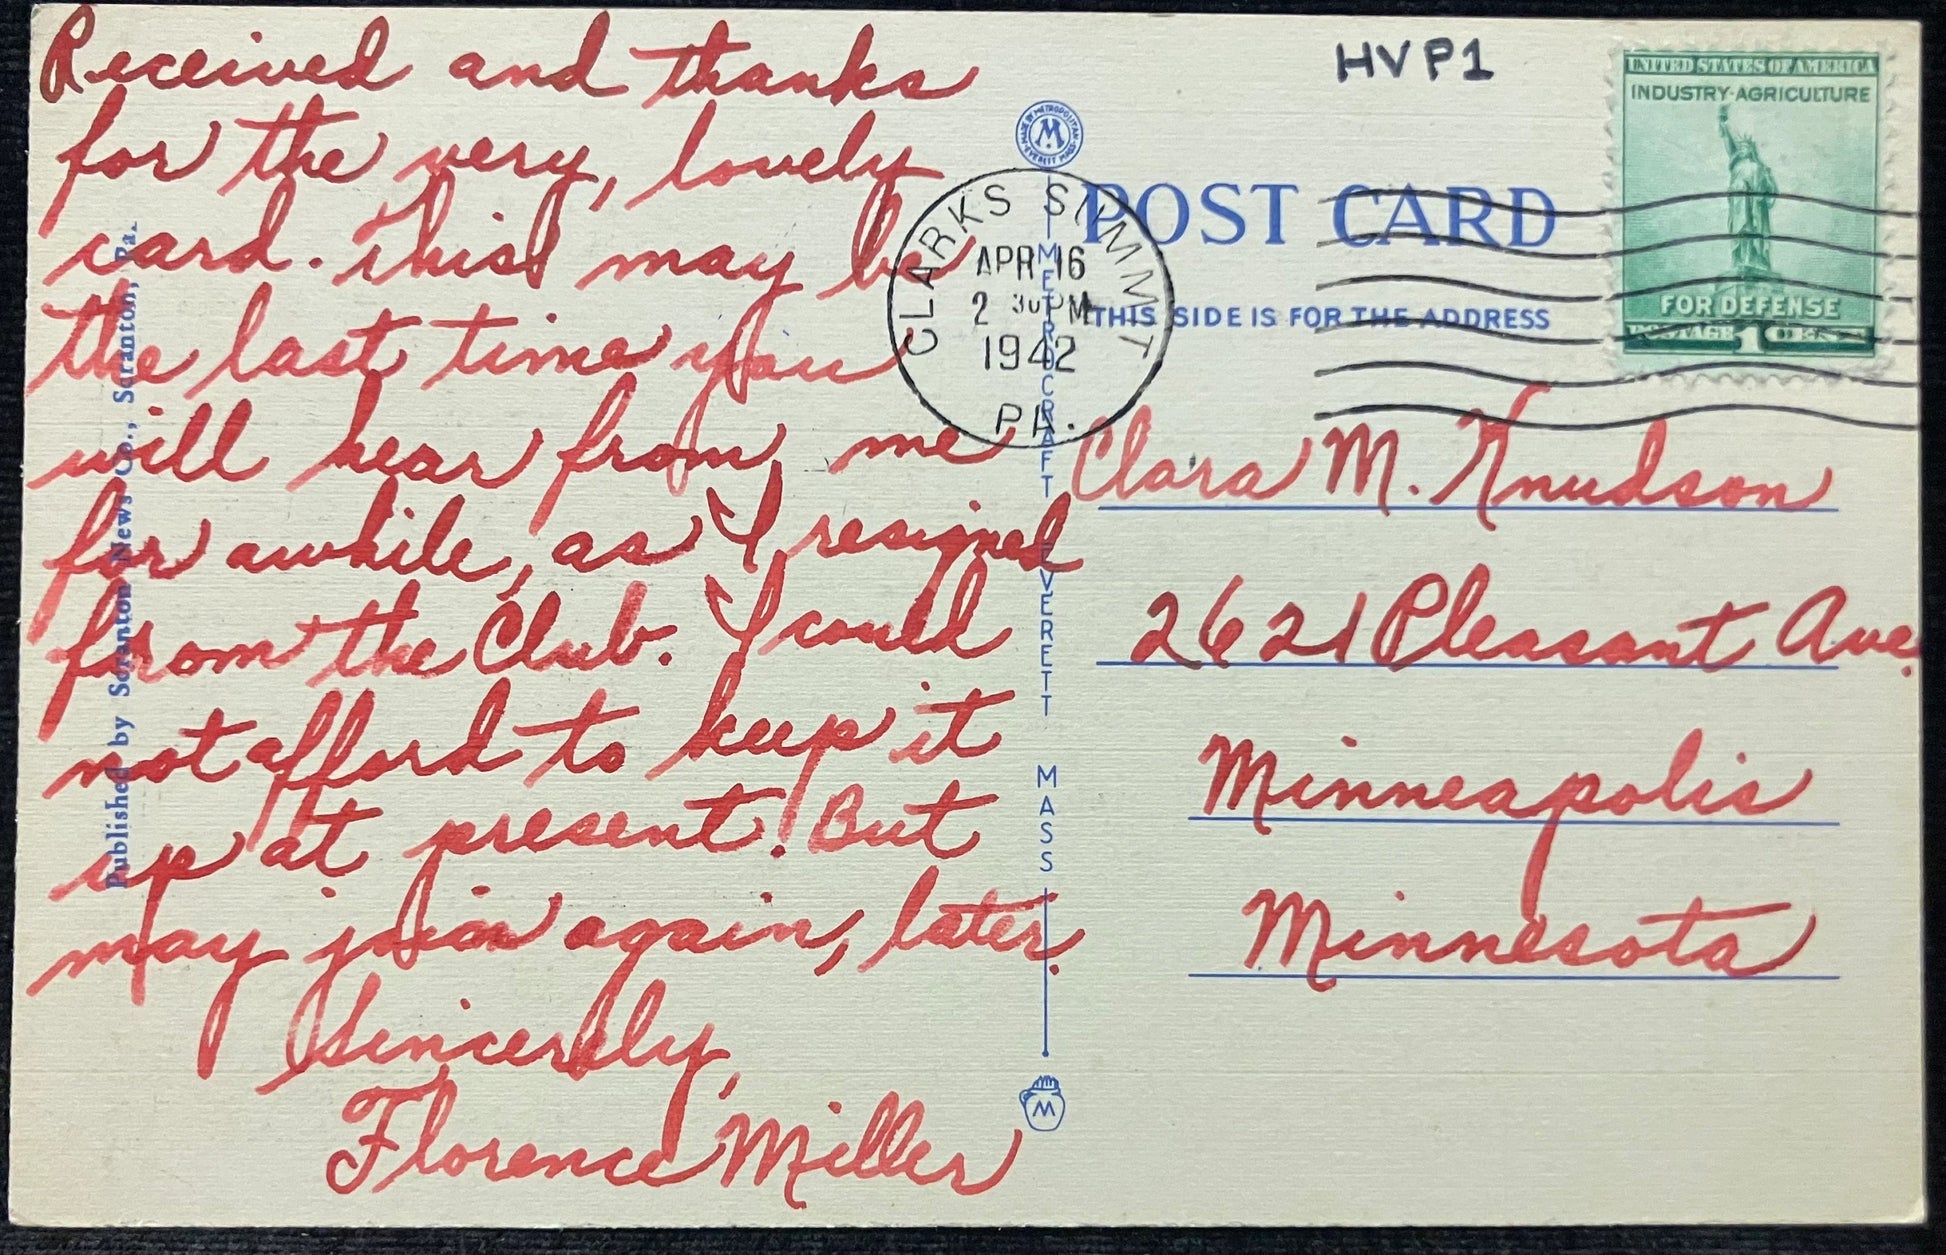 Received and thanks
for the very, lovely
card. This may be
the last time you
will hear from, me
for awhile, as I resigned
from the Club. I could
not afford to keep it
up at present. But
may join again, later.
Sincerely,
Florence Miller
Published by Scranton News Co., Scranton, Pa.
MADE BY METROPOLITAN
M
EVERETT MASS
METROCRAFT EVERETT MASS
M
CLARKS SUMMIT
APR 16
2 30 PM
1942
PA.
HVP1
POST CARD
THIS SIDE IS FOR THE ADDRESS
UNITED STATES OF AMERICA
INDUSTRY-AGRICULTURE
FOR DEFENSE
POSTAGE 1 CENT
Clara M. Knudson
2621 Pleasant Ave.
Minneapolis
Minnesota